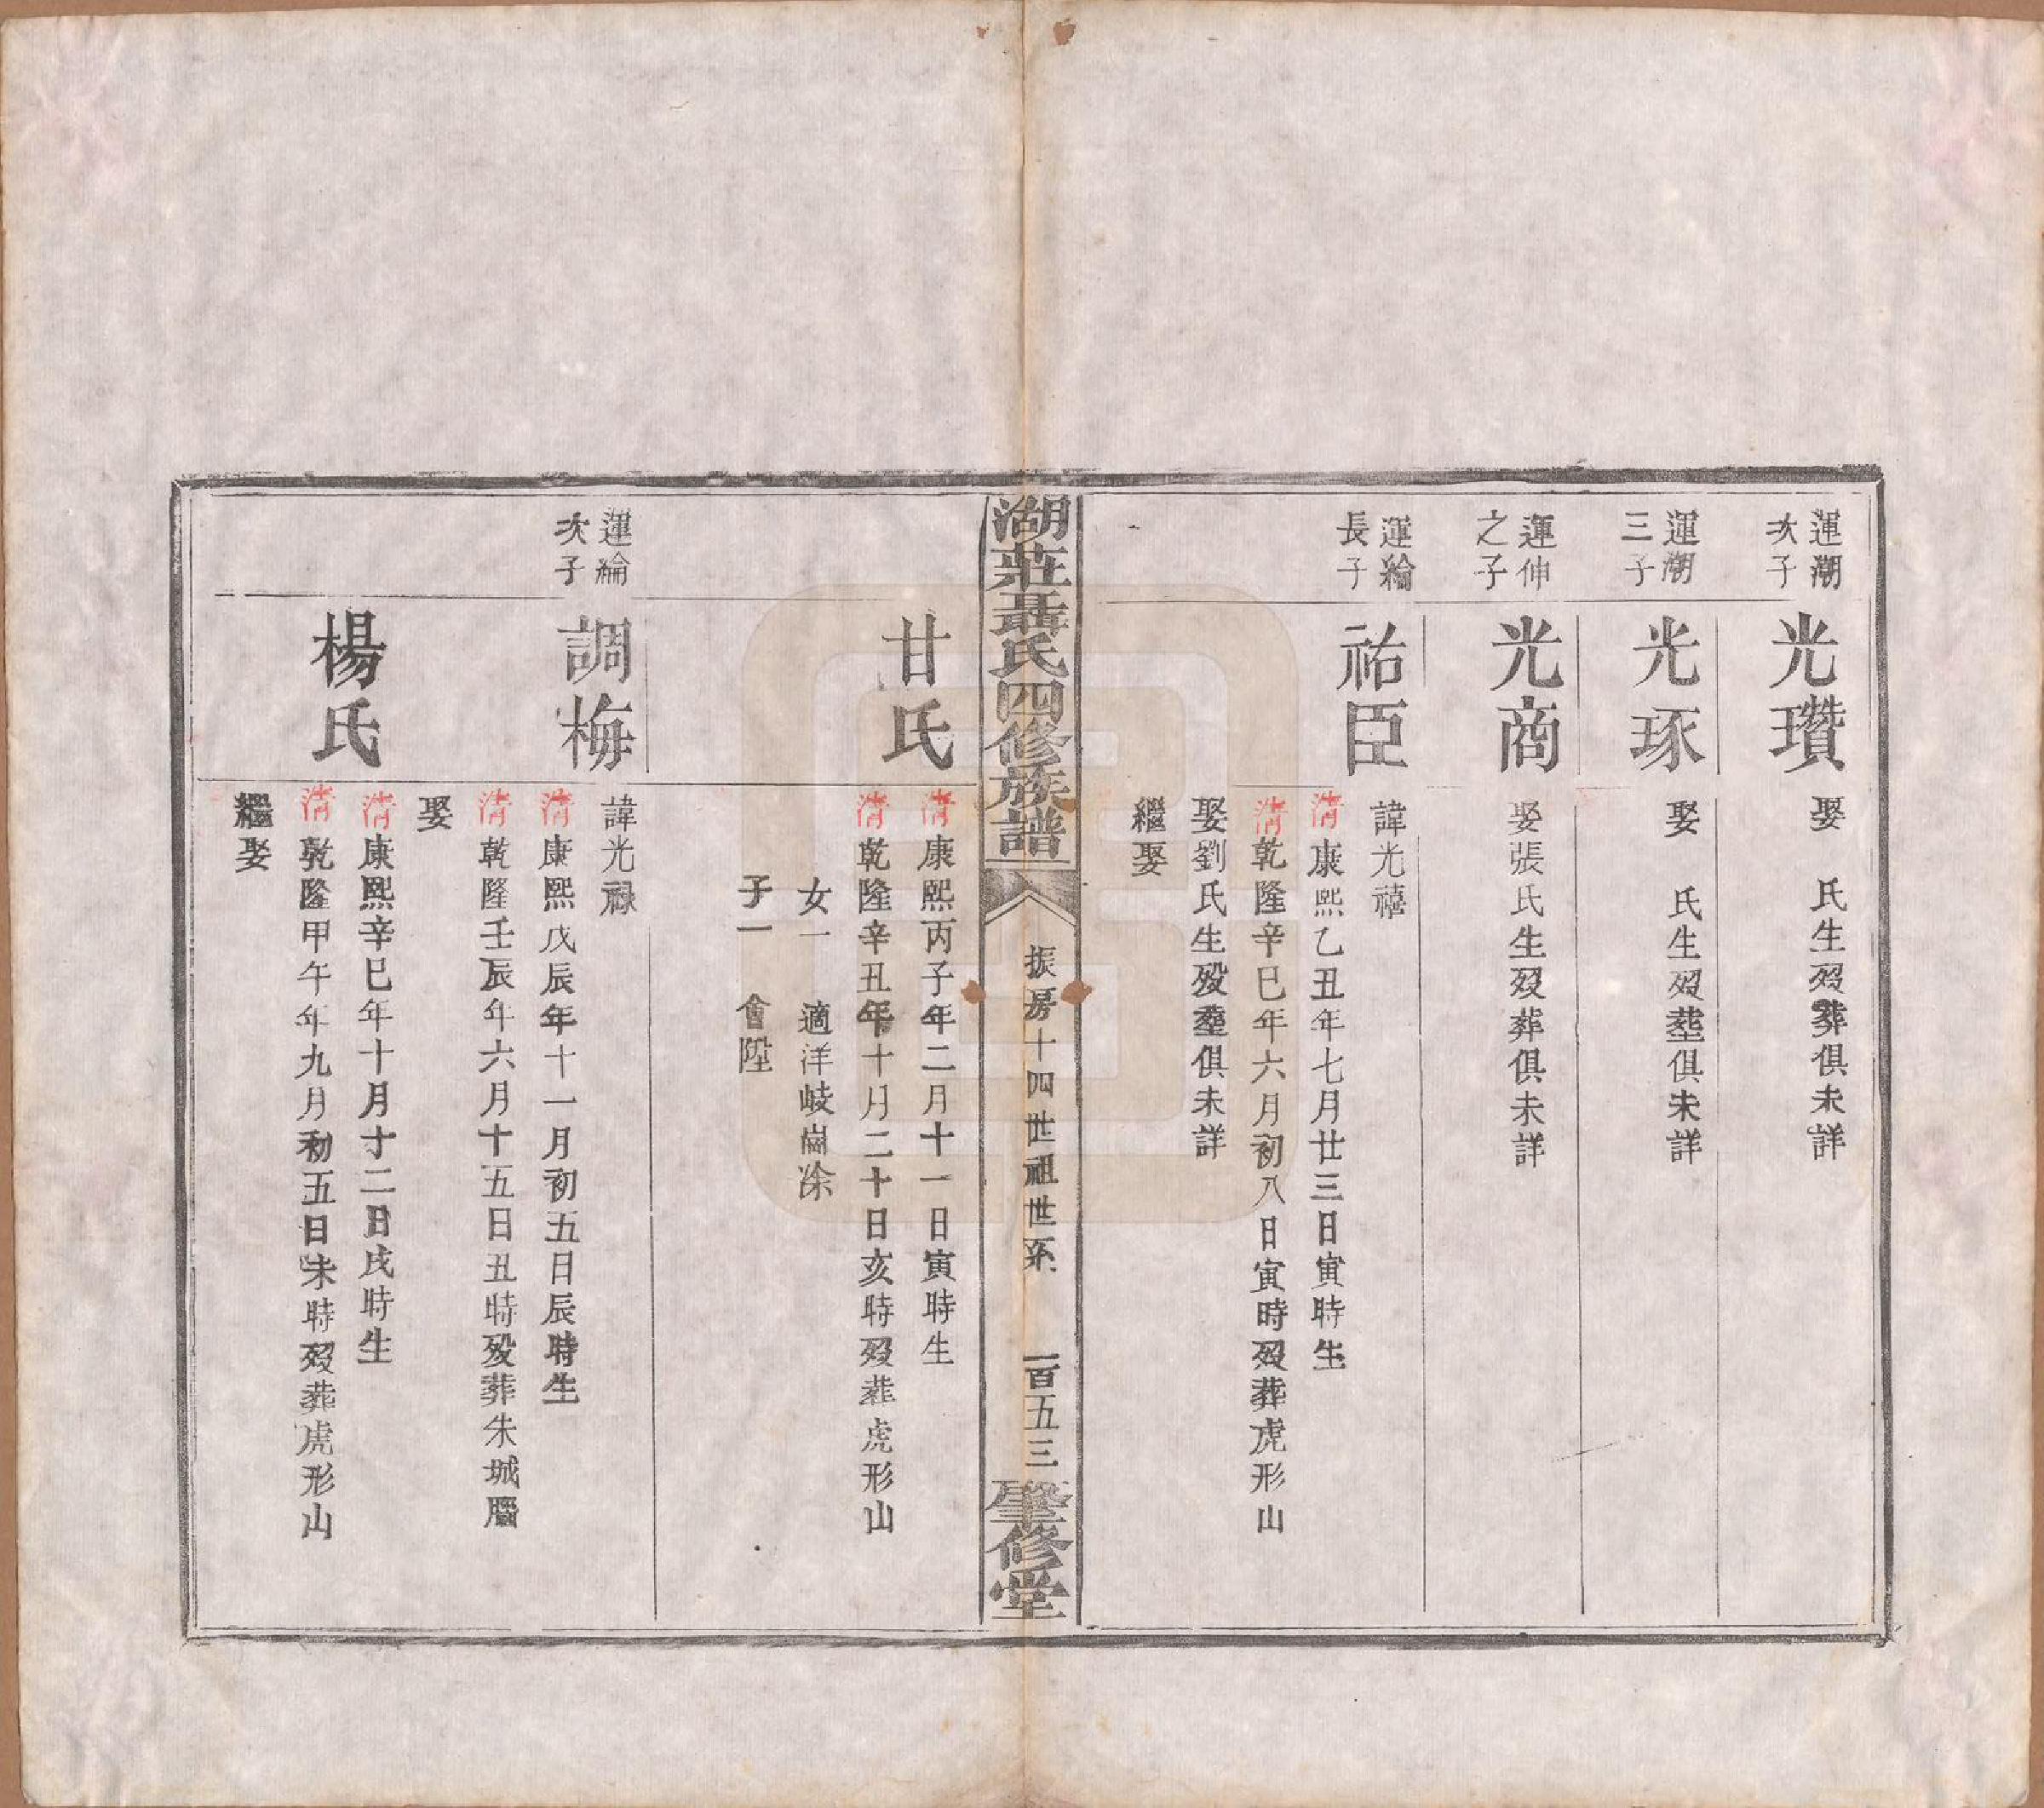 運潮
次子
光瓚
娶　氏生歿葬俱未詳
運潮
三子
光琢
娶　氏生歿塟俱未詳
運伸
之子
光商
娶張氏生歿葬俱未詳
運綸
長子
祐臣
諱光禧
清康熙乙丑年七月廿三日寅時生
清乾隆辛巳年六月初八日寅時歿葬虎形山
娶劉氏生歿塟俱未詳
繼娶
湖莊聶氏四修族譜
振房十四世祖世系
一百五三
肇修堂
甘氏
清康熙丙子年二月十一日寅時生
清乾隆辛丑年十月二十日亥時歿葬虎形山
女一　適洋岐崗涂
子一　會陞
運綸
次子
調梅
諱光祿
清康熙戊辰年十一月初五日辰時生
清乾隆壬辰年六月十五日丑時歿葬朱城腦
娶
楊氏
清康熙辛巳年十月十二日戌時生
清乾隆甲午年九月初五日未時歿葬虎形山
繼娶